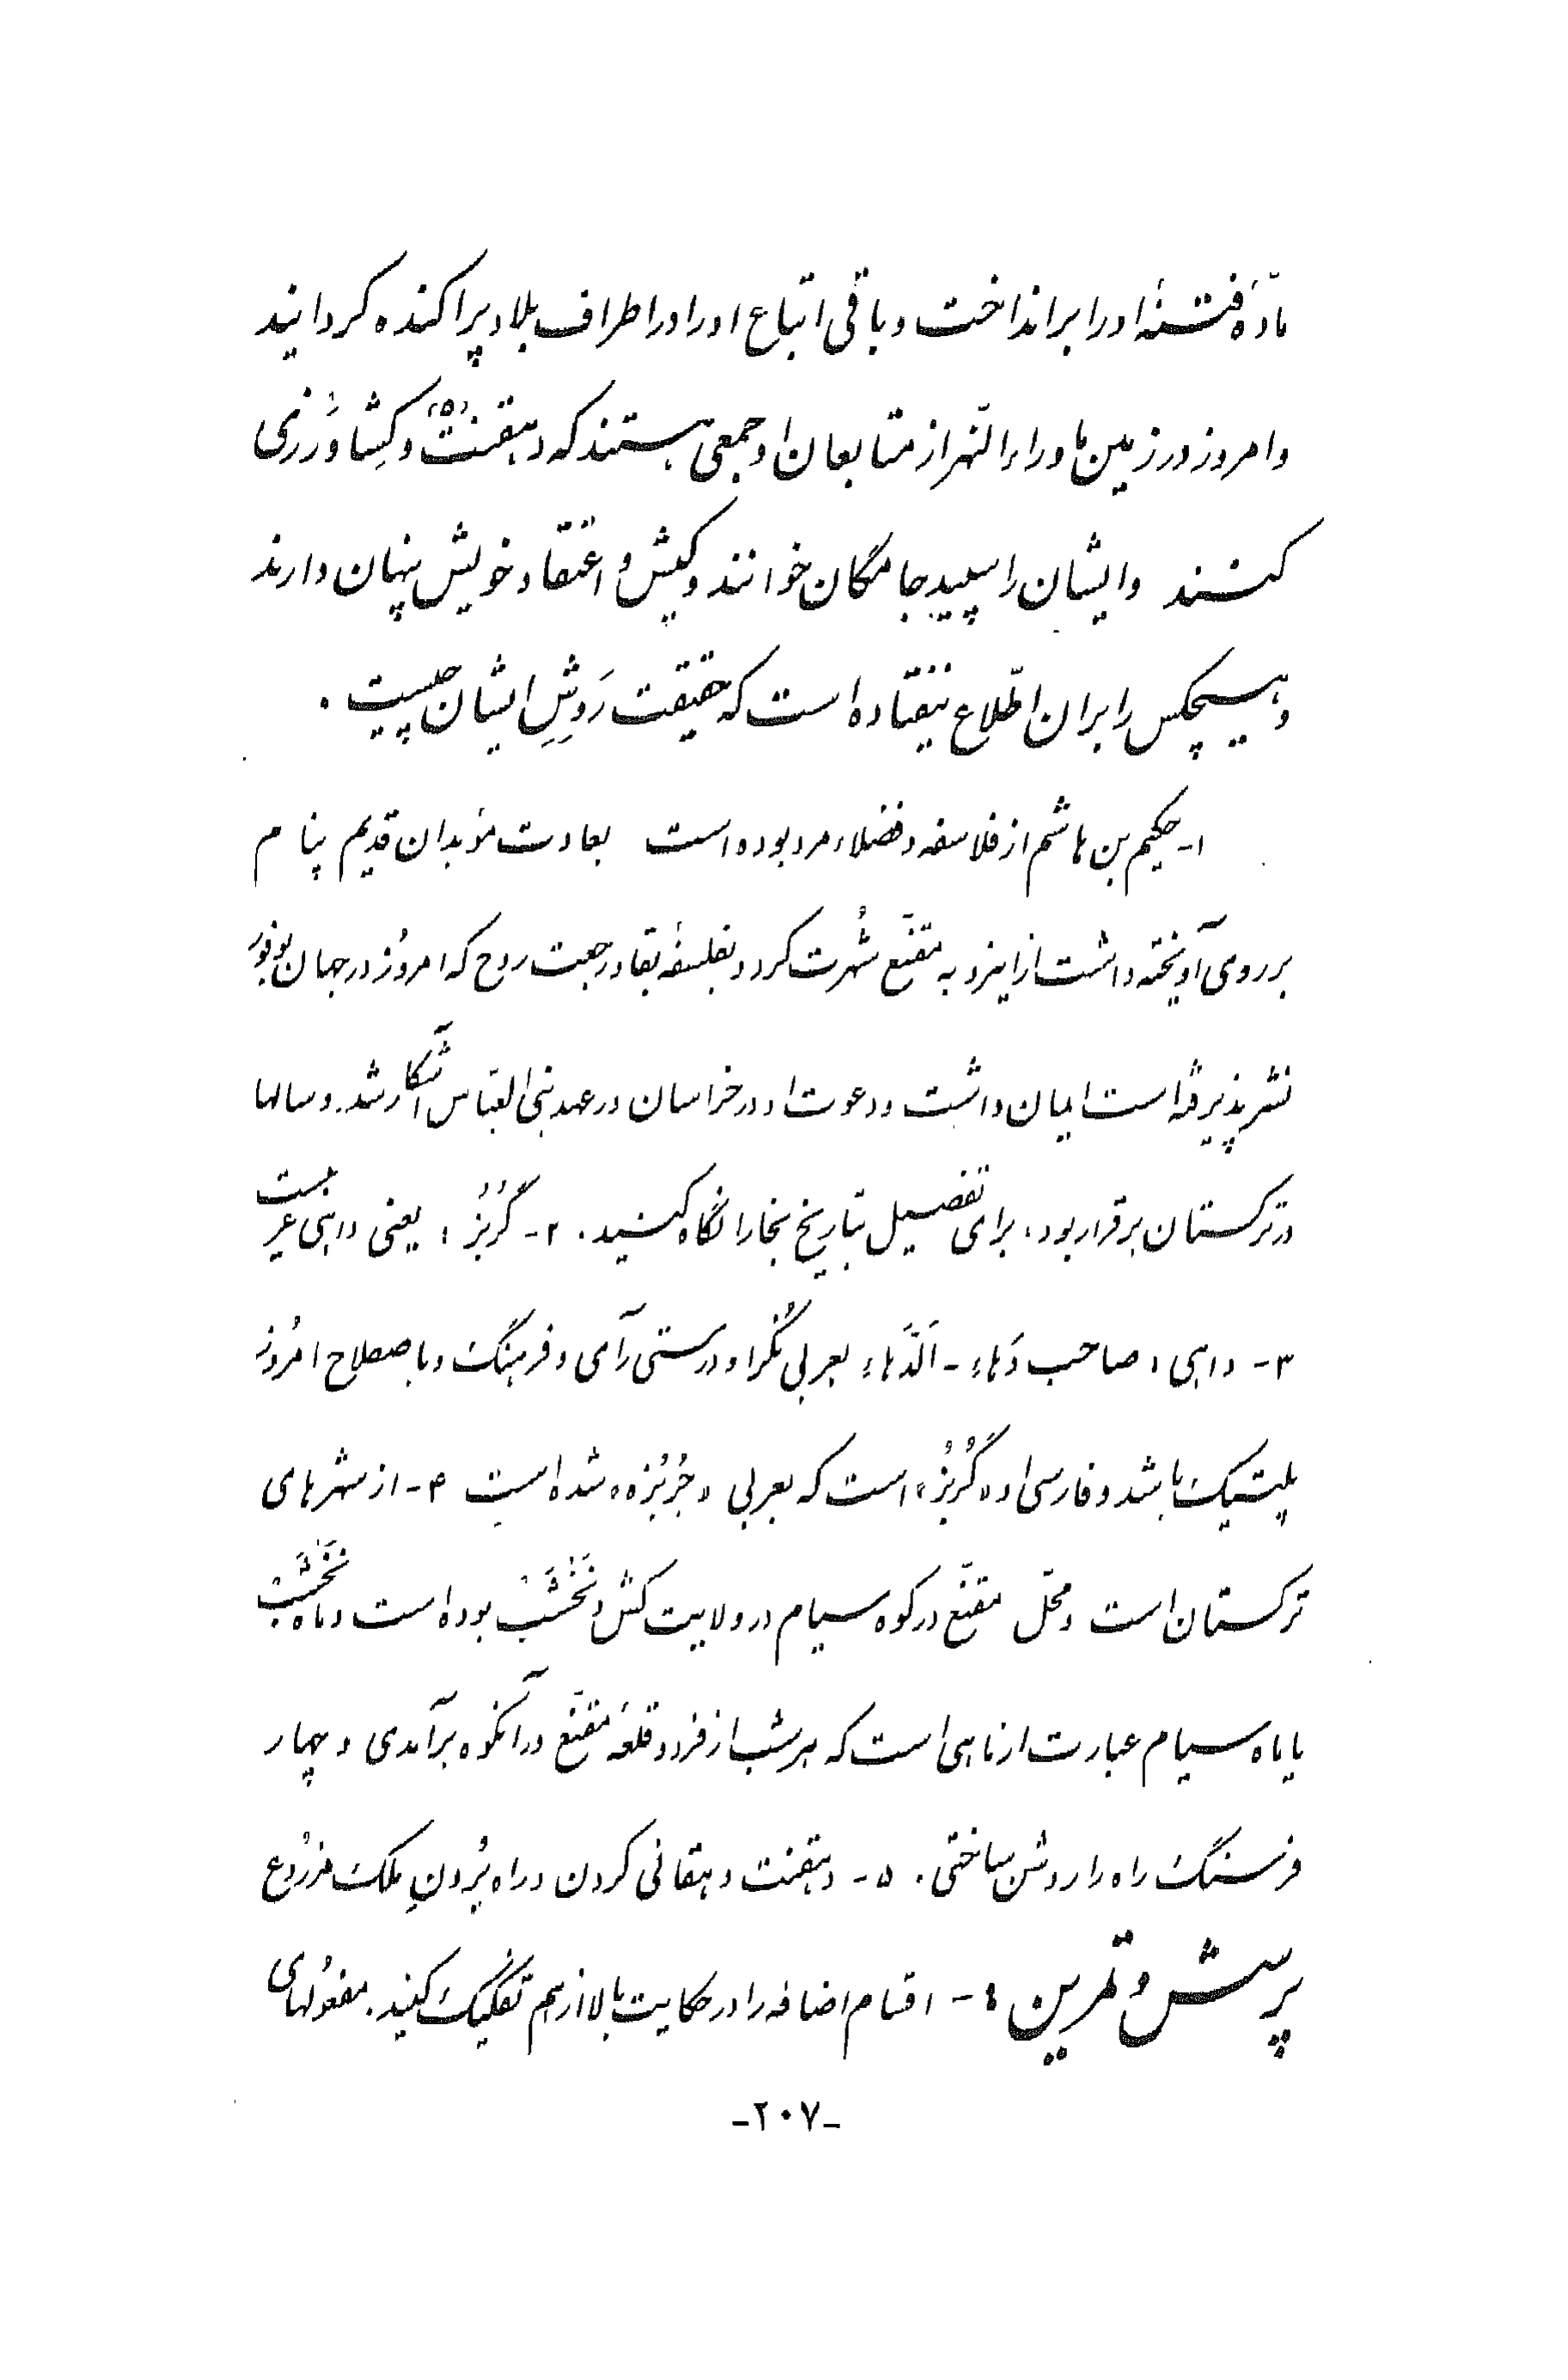 مادّهٔ فتنهٔ او را برانداخت و باقی اتباع او را در اطراف بلاد پراکنده گردانید
و امروز در زمین ماوراءالنّهر از متابعان او جمعی هستند که دهقنت (۵) و کِشاوَرزی
کنند و ایشان را سپید جامگان خوانند و کیش و اعتقاد خویش پنهان دارند
و هیچکس را بران اطّلاع نیفتاده است که حقیقت رَوِشِ ایشان چیست .
۱- حکیم بن هاشم از فلاسفه و فضلاء مرو بوده است بعادت مؤبدان قدیم پنام
بر روی آویخته داشت از اینرو به مقنّع شُهرت کرد و بفلسفهٔ بقا و رجعت روح که امروُز در جهان بوفوُر
نشر پذیرفته است ایمان داشت و دعوت او در خراسان در عهد بنی العبّاس آشکار شد. و سالها
در ترکستان برقرار بود، برای تفصیل بتاریخ بخارا نگاه کنید . ۲- گُربُز : یعنی داهی عربیست
۳- داهی : صاحب دَهاء - اَلدَّهاء بعربی نُکرا و درستی رآی و فرهنگ و باصطلاح امرُوز
پلیتیک باشد و فارسی او «گُربُز» است که بعربی «جُربُزه» شده است ۴- از شهرهای
ترکستان است و محّل مقنّع در کوه سیام در ولایت کش و نَخْشَبْ بوده است و ماه نَخْشَبْ
یا ماه سیام عبارت از ماهی است که هر شب از فرود قلعهٔ مقنّع در آنکوه برآمدی و چهار
فرسنگ راه را روشن ساختی . ۵- دهقنت دهقانی کردن و راه بُردنِ ملک مزرُوع
پرسش و تمرین :- اقسام اضافه را در حکایت بالا از هم تفکیک کنید. مفعوُلهای
-۲۰۷-